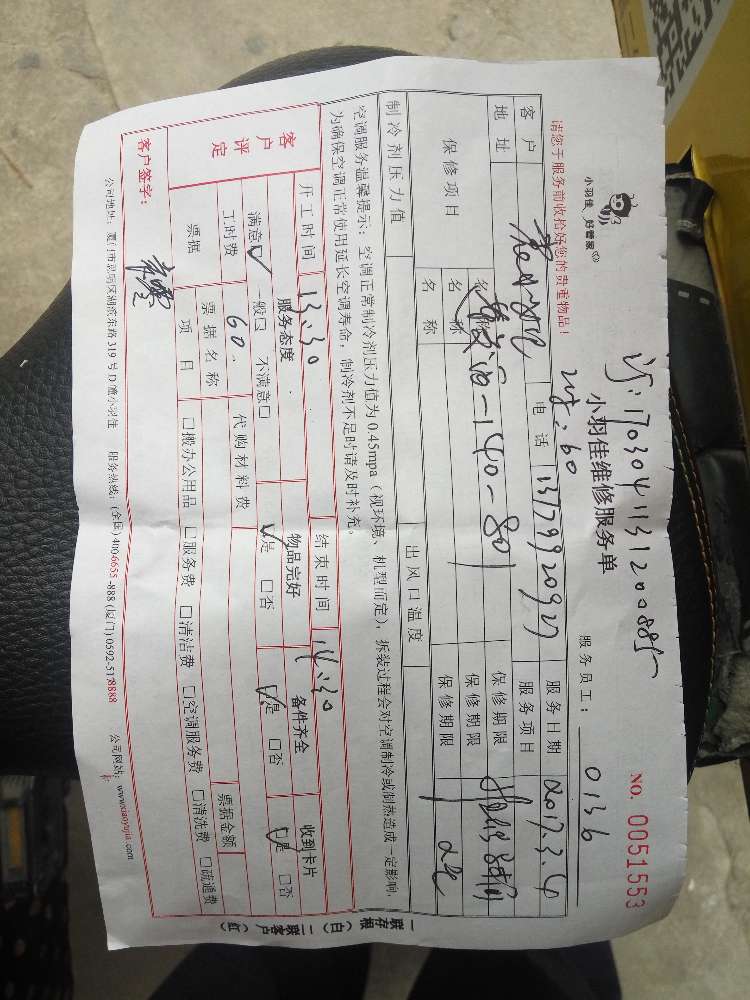 小羽佳 好管家
小羽佳维修服务单
NO. 0051553
服务员工： 0136
请您于服务前收拾好您的贵重物品！
客户
电话 13779920927
服务日期 2017.3.4
地址
服务项目
保修项目
名称
保修期限
名称
保修期限
名称
保修期限
制冷剂压力值
出风口温度
空调服务温馨提示：空调正常制冷剂压力值为0.45mpa（视环境、机型而定），拆装过程会对空调制冷或制热造成一定影响，
为确保空调正常使用延长空调寿命，制冷剂不足时请及时补充。
开工时间 13:30
结束时间 14:30
客户评定
服务态度
物品完好
备件齐全
收到卡片
满意☑ 一般□ 不满意□
☑是 □否
☑是 □否
☑是 □否
工时费 60.
代购材料费
票据
票据名称
票据金额
项目
□搬办公用品 □服务费 □清洁费 □空调服务费 □清洗费 □疏通费
客户签字：
公司地址：厦门市思明区湖滨东路319号D幢小羽佳 服务热线：(全国)400-6655-888 (厦门)0592-5178888 公司网站：www.xiaoyujia.com
一联存根（白）二联客户（红）